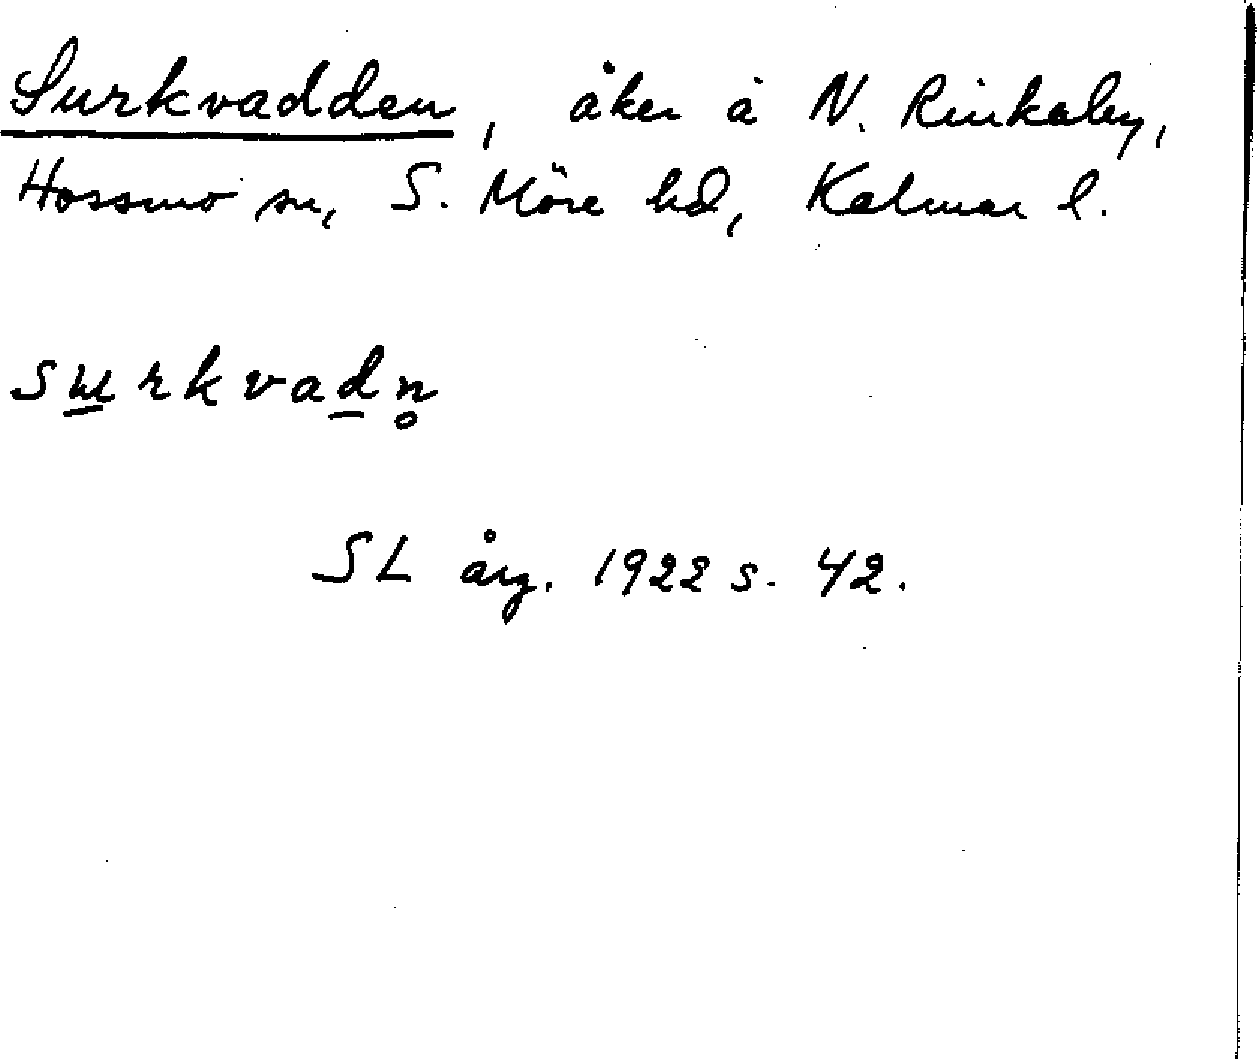 Surkvadden, åker å N. Rinkaby,
Hossmo sn, S. Möre hd, Kalmar l.
sɯ̲rkvad̲n̥
SL årg. 1922 s. 42.